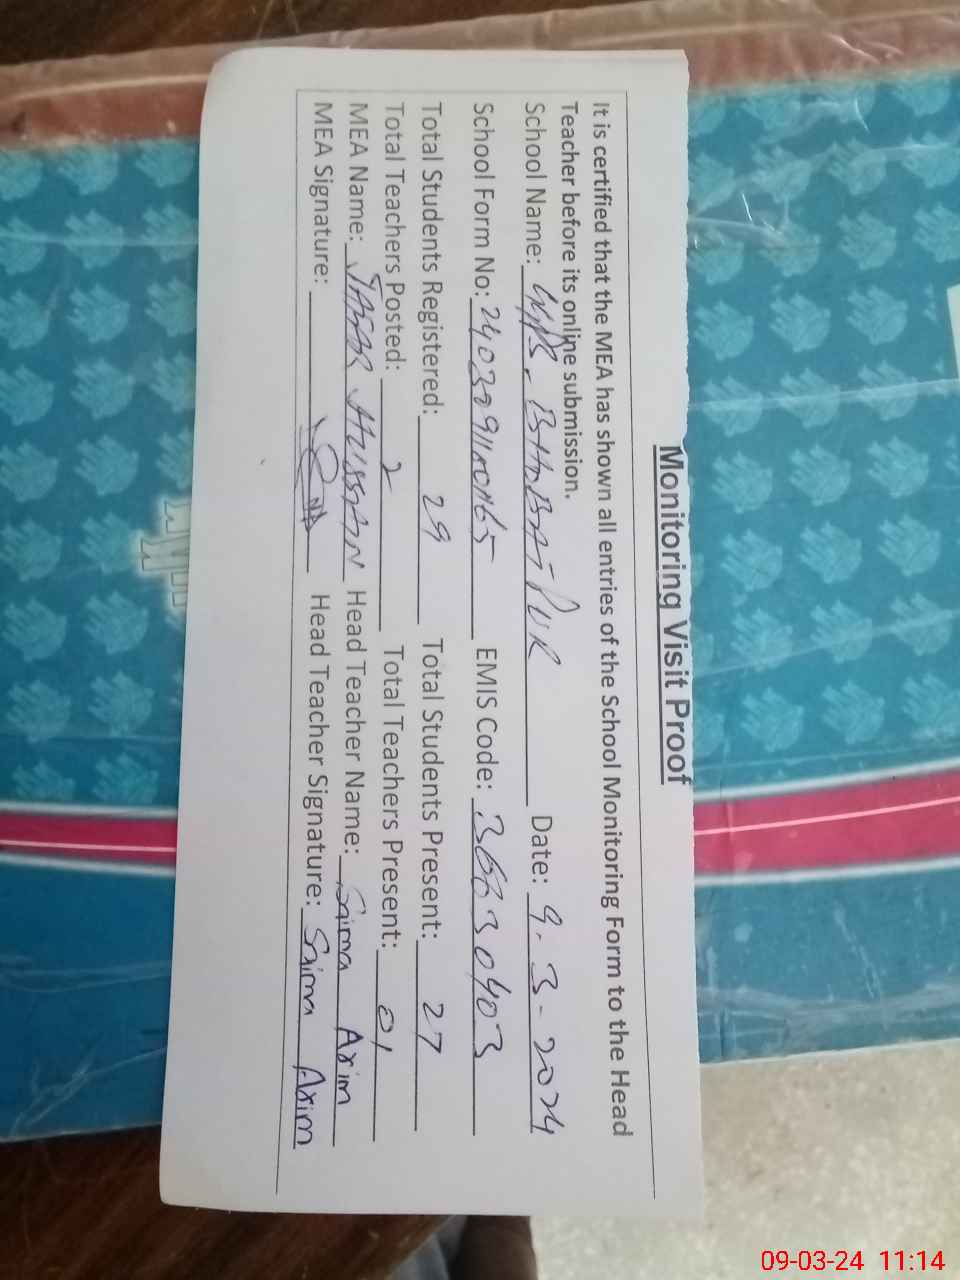 Monitoring Visit Proof
It is certified that the MEA has shown all entries of the School Monitoring Form to the Head
Teacher before its online submission.
School Name: BHOBATPUR Date: 9-3-2024
School Form No: EMIS Code:
Total Students Registered: 29 Total Students Present: 27
Total Teachers Posted: 2 Total Teachers Present: 01
MEA Name: HUSSAIN Head Teacher Name: Saima
MEA Signature: Head Teacher Signature: Saima
09-03-24 11:14